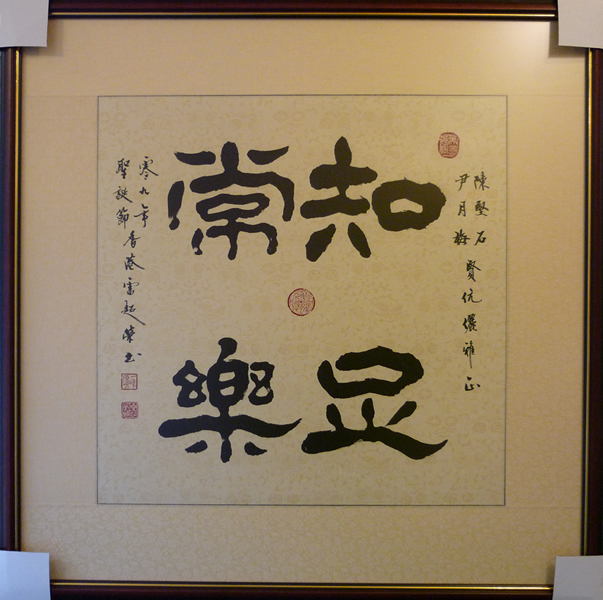 陳堅石
尹月梅
賢伉儷雅正
知足
常樂
零九年
聖誕節
香港雷超榮書